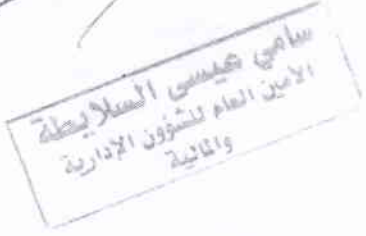 سامي عيسى السلايطة
الأمين العام للشؤون الإدارية
والمالية